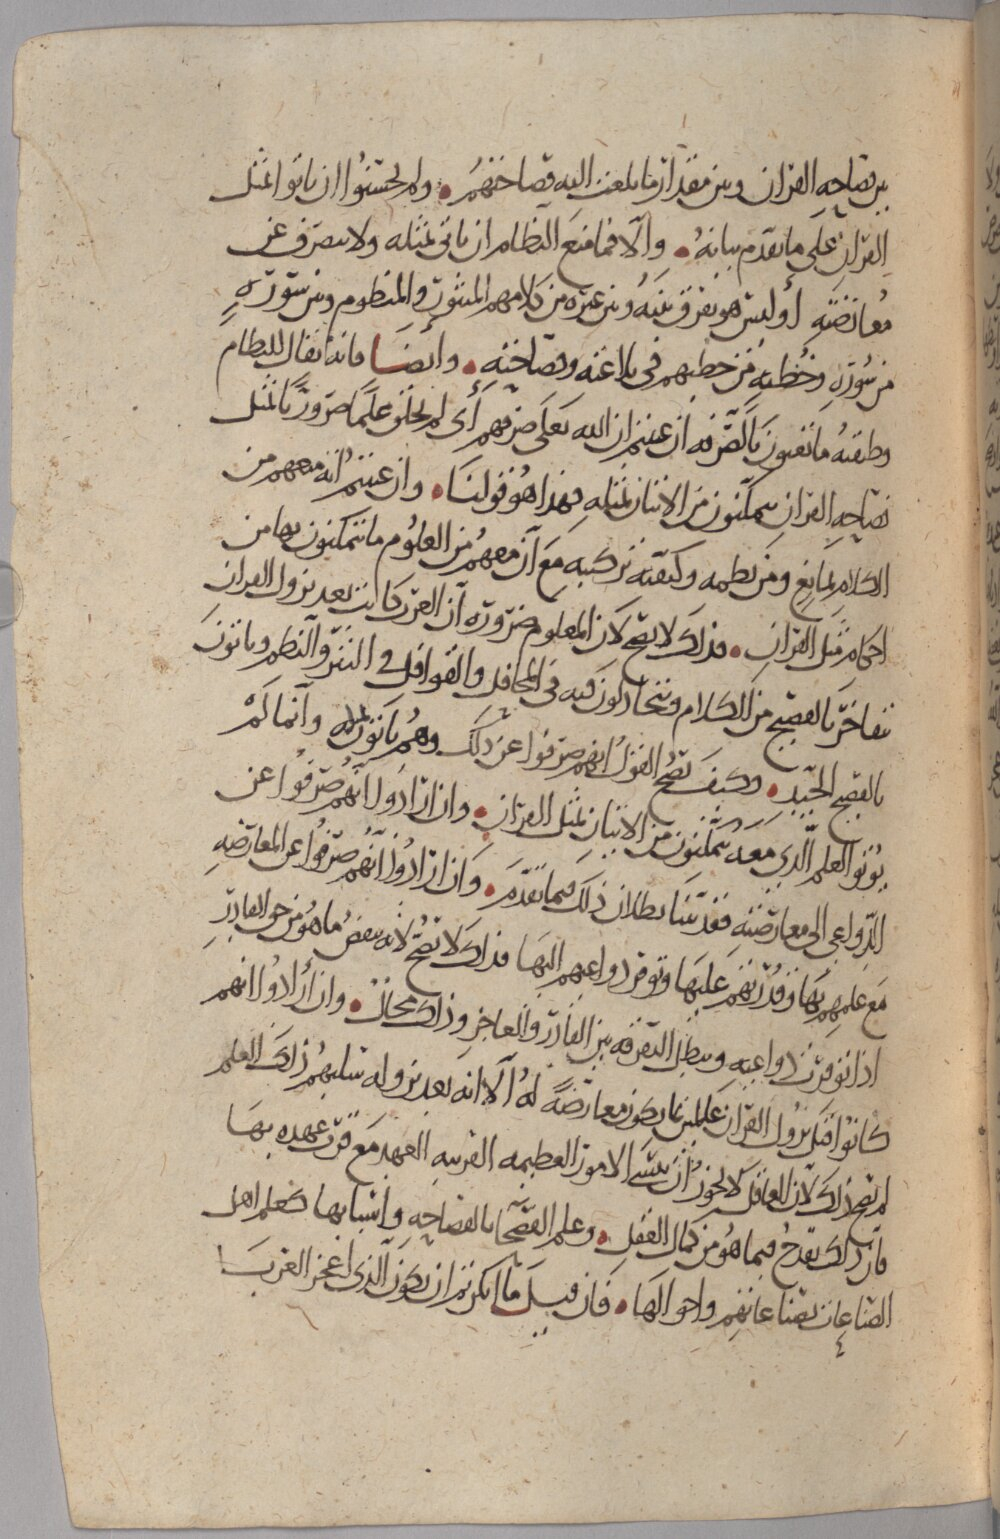 بين فصاحه القران وبين مقدار ما بلغت اليه فصاحتهم • ولم يحسنوا ان ياتوا بمثل
القران على ما تقدم بيانه • والا فما منع النظام ان ياتى بمثله ولا يصرف عن
معارضته اوليس هو يفرق بينه وبين غيره من كلامهم المنثور والمنظوم وبين سورة
من سوره وخطبه من خطبهم فى بلاغته وفصاحته • وايضا فانه يقال للنظام
وطبقته ما تعنون بالصرفه ان عنيتم ان الله تعلى صرفهم اى لم يخلق علما ضروريا بمثل
فصاحه القران يتمكنون من الاتيان بمثله فهذا هو قولنا • وان عنيتم انه منعهم من
الكلام بمانع ومن نظمه وكيفيه تركيبه مع ان معهم من العلوم ما يتمكنون بها من
احكام مثل القران • فذلك لا يصح لان المعلوم ضروره ان العرب كانت بعد نزول القران
تتفاخر بالفصيح من الكلام ويتحاركون فيه فى المحافل والقوافل فى النثر والنظم وياتون
بالفصيح الجيد • وكيف يصح القول انهم صرفوا عن ذلك وهم ياتون بمثله وانما لم
يوتوا العلم الذى معه يتمكنون من الاتيان بمثل القران • وان ارادوا انهم صرفوا عن
الدواعى الى معارضته فقد بينا بطلان ذلك فيما تقدم • وان ارادوا انهم صرفوا عن المعارضه
مع علمهم بها وقدرتهم عليها وتوفر دواعيهم اليها فذلك لا يصح لانه ينقض ما هو من حق القادر
اذا توفرت دواعيه ويبطل التفرقه بين القادر والعاجز وذلك محال • وان ارادوا انهم
كانوا قبل نزول القران عالمين بما يكون معارضة له الا انه بعد نزوله سلبهم ذلك العلم
لم يصح ذلك لان العاقل لا يجوز ان ينسى الامور العظيمه القريبه العهد مع قرب عهده بها
فان ذلك يقدح فيما هو من كمال العقل • وعلم الفصحا بالفصاحه واسبابها كعلم اهل
الصناعات بصناعاتهم واحوالها • فان قيل ما انكرتم ان يكون الذى اعجز العرب